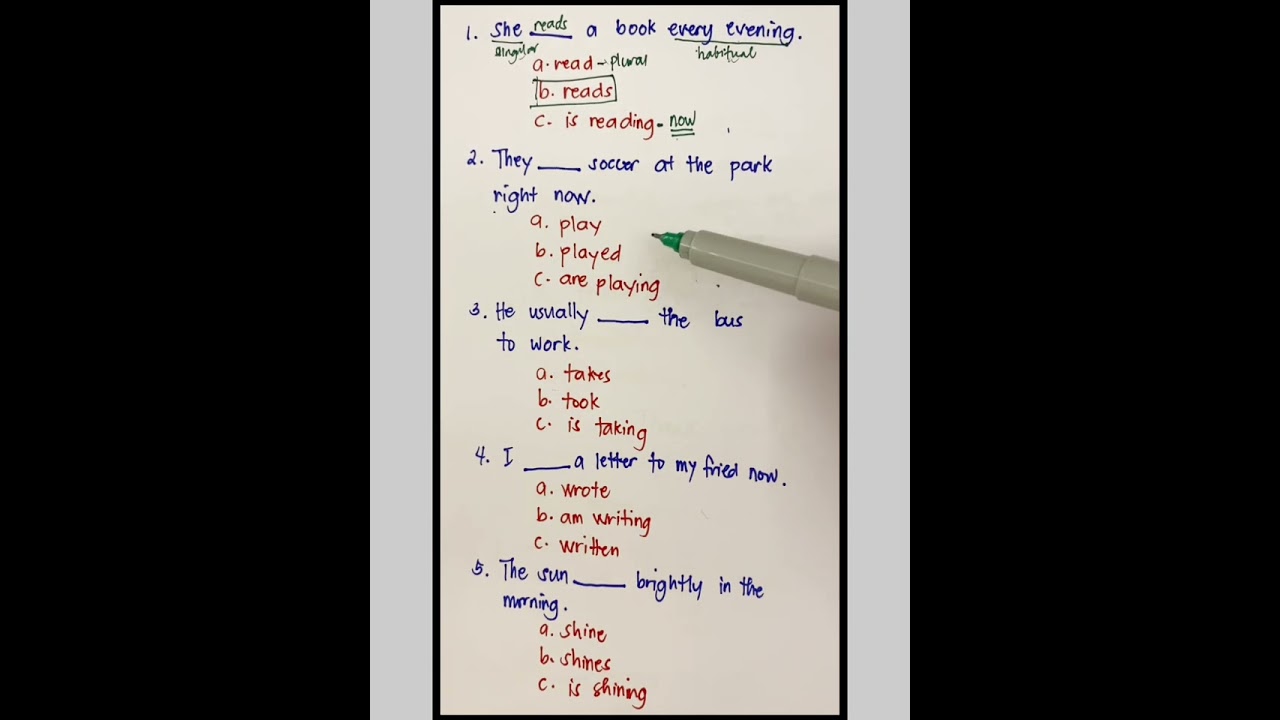 1. She reads a book every evening.
singular habitual
a. read - plural
b. reads
c. is reading - now
2. They ____ soccer at the park
right now.
a. play
b. played
c. are playing
3. He usually ____ the bus
to work.
a. takes
b. took
c. is taking
4. I ____ a letter to my fried now.
a. wrote
b. am writing
c. written
5. The sun ____ brightly in the
morning.
a. shine
b. shines
c. is shining